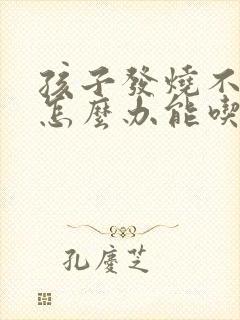 孩子發燒不
怎麼办能喫
孔慶芝